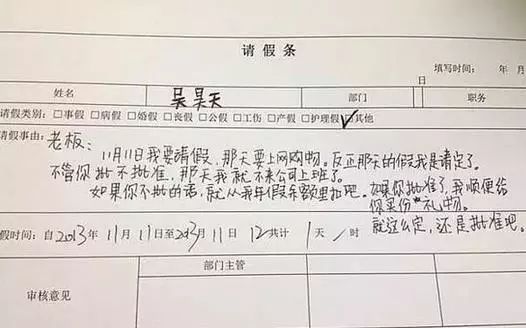 请假条
填写时间： 年 月 日
姓名 吴昊天 部门 职务
请假类别：□事假 □病假 □婚假 □丧假 □公假 □工伤 □产假 □护理假 ☑其他
请假事由：老板：
11月11日我要請假，那天要上网购物。反正那天的假我是请定了。
不管你批不批准，那天我就不来公司上班了。
如果你不批的话，就从我年假余额里扣吧。如果你批准了，我顺便给
你买份礼物。
就这么定，还是批准吧。
假时间：自2013年11月11日至2013月11日12共计1天 时
部门主管
审核意见